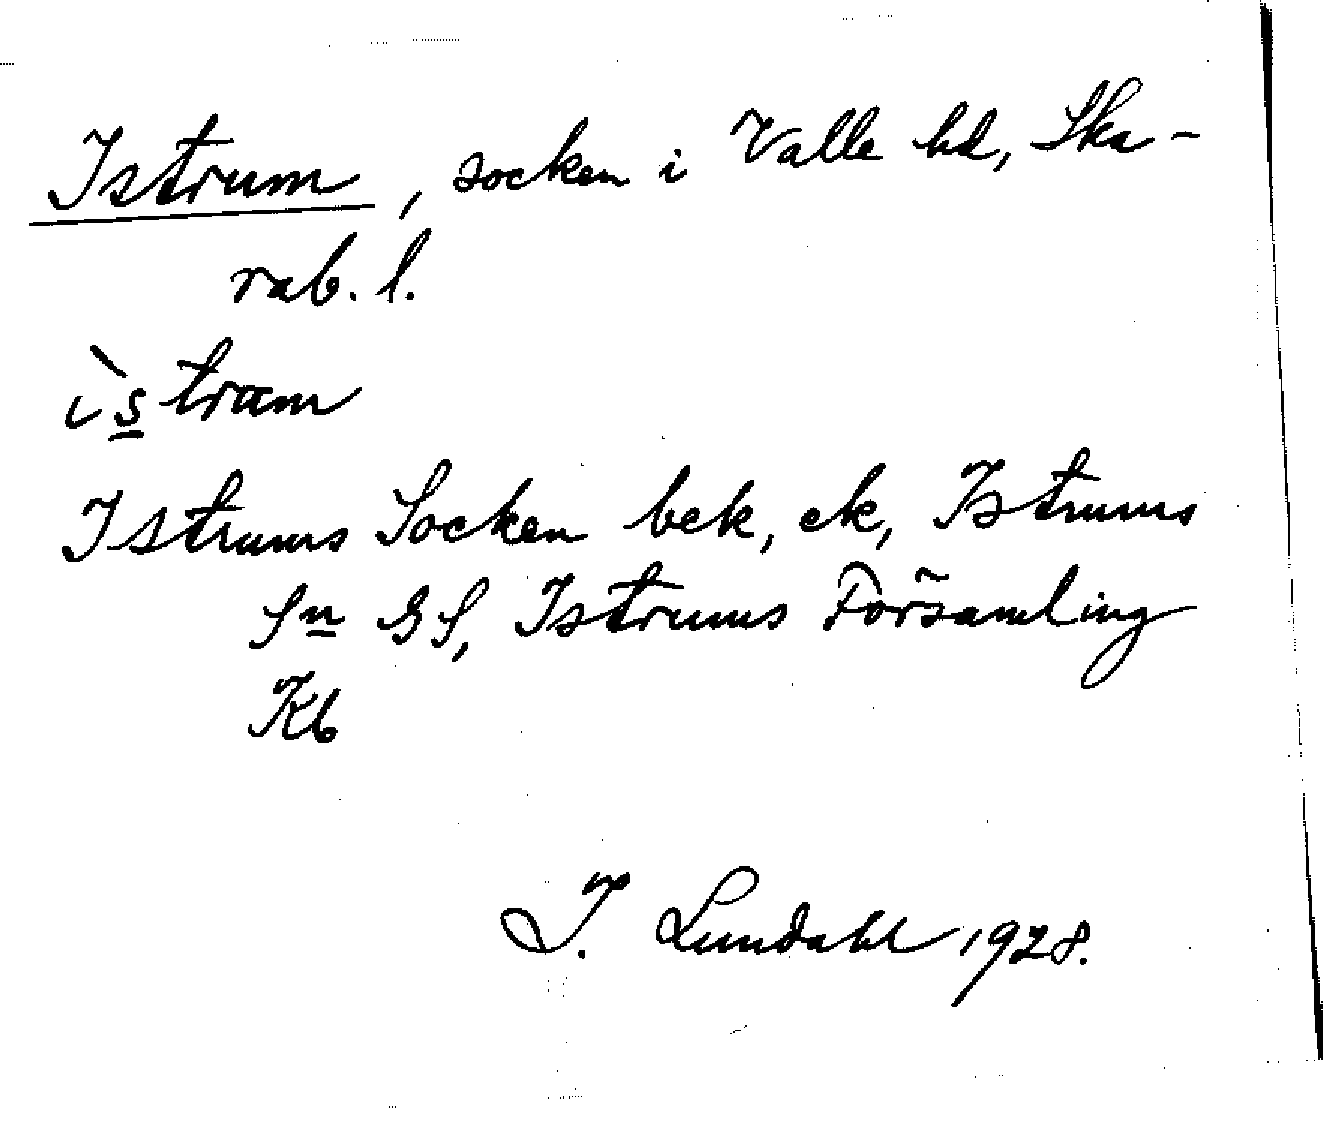 Istrum, socken i Valle hd, Ska-
rab. l.
ìstram
Istrums Socken bek, ek, Istrums
Sn GS, Istrums Församling
Kb
I. Lundahl 1928.